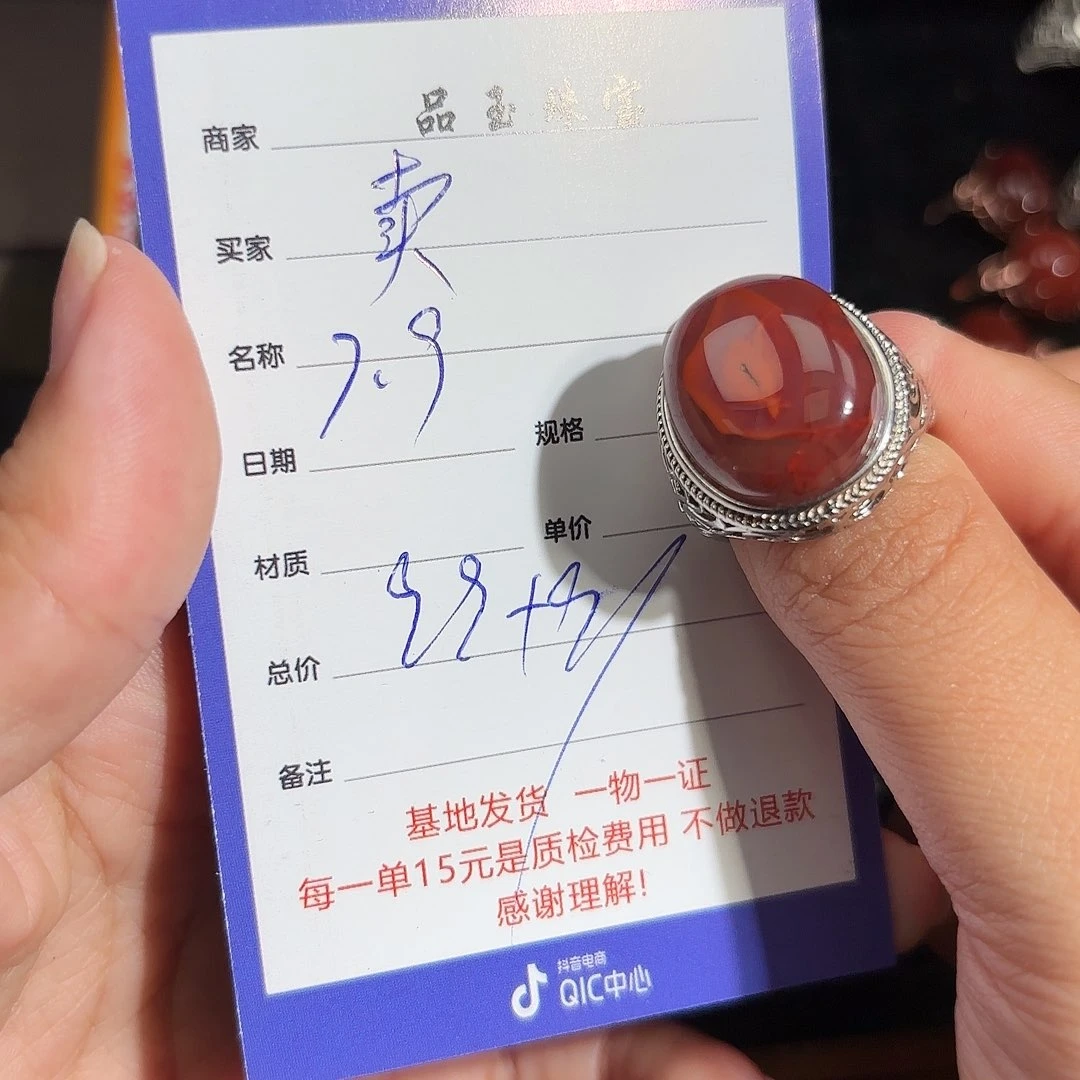 商家 品玉珠宝
买家 卖
名称
7.9
日期 规格
材质 单价
总价
备注
基地发货 一物一证
每一单15元是质检费用 不做退款
感谢理解!
抖音电商
QIC中心